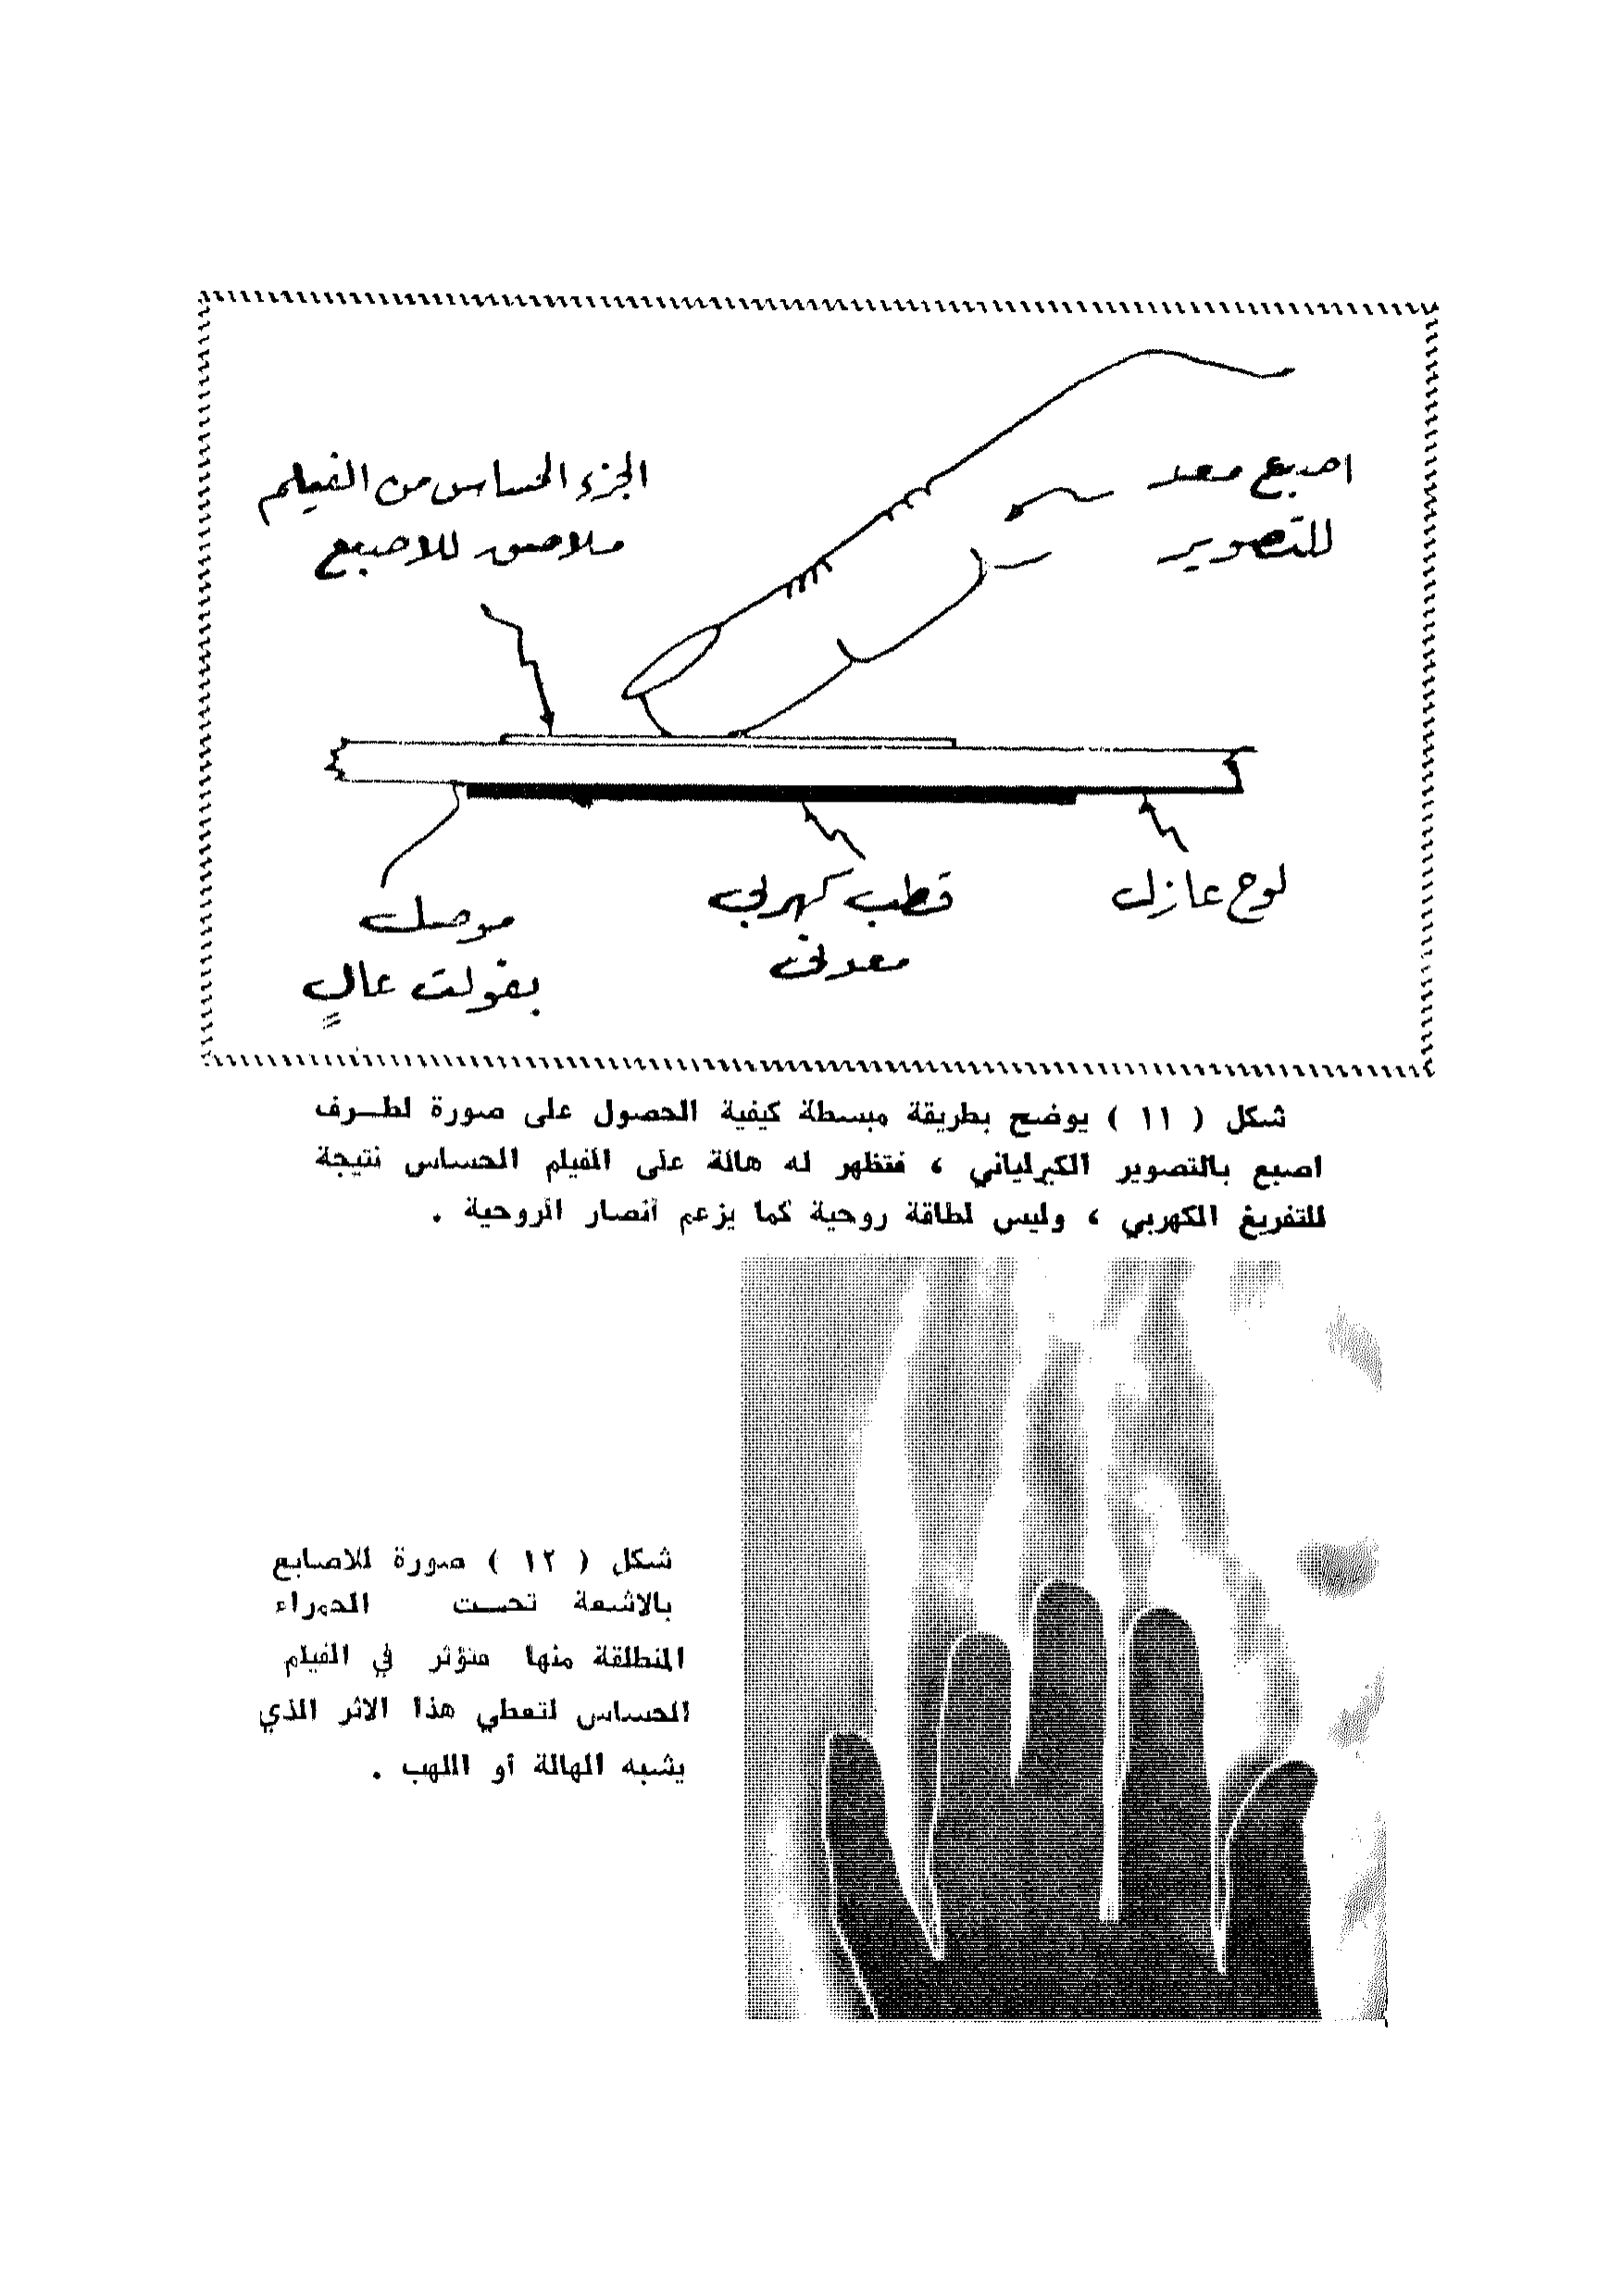 اصبع معد
للتصوير
الجزء الحساس من الفيلم
ملاصق للاصبع
لوح عازل
قطب كهربي
معدني
موصل
بفولت عالٍ
شكل ( ١١ ) يوضح بطريقة مبسطة كيفية الحصول على صورة لطـرف
اصبع بالتصوير الكيرلياني ، فتظهر له هالة على الفيلم الحساس نتيجة
للتفريغ الكهربي ، وليس لطاقة روحية كما يزعم أنصار الروحية .
شكل ( ١٢ ) صورة للاصابع
بالاشعة تحـت الحمراء
المنطلقة منها فتؤثر في الفيلم
الحساس لتعطي هذا الاثر الذي
يشبه الهالة أو اللهب .